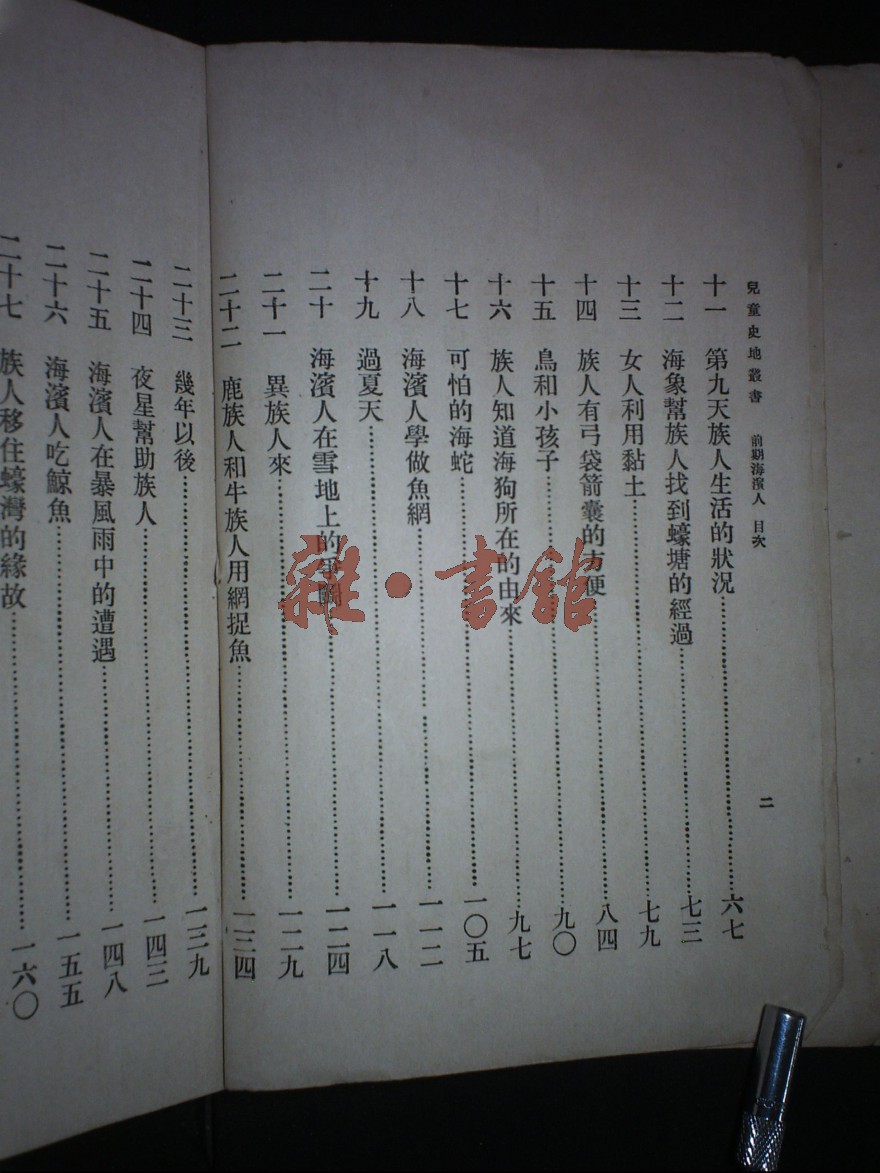 兒童史地叢書　前期海濱人　目次
二
十一　第九天族人生活的狀況……六七
十二　海象幫族人找到蠔塘的經過……七三
十三　女人利用黏土……七九
十四　族人有弓袋箭囊的方便……八四
十五　鳥和小孩子……九〇
十六　族人知道海狗所在的由來……九七
十七　可怕的海蛇……一〇五
十八　海濱人學做魚網……一一二
十九　過夏天……一一八
二十　海濱人在雪地上的爭鬥……一二四
二十一　異族人來……一二九
二十二　鹿族人和牛族人用網捉魚……一三四
二十三　幾年以後……一三九
二十四　夜星幫助族人……一四三
二十五　海濱人在暴風雨中的遭遇……一四八
二十六　海濱人吃鯨魚……一五五
二十七　族人移住蠔灣的緣故……一六〇
雜·書館